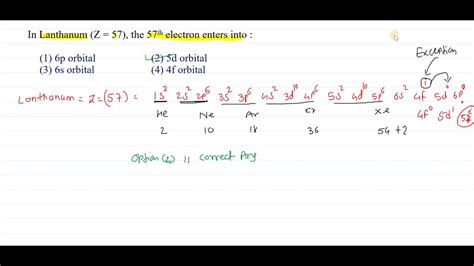 In Lanthanum (Z = 57), the 57th electron enters into :
(1) 6p orbital (2) 5d orbital
(3) 6s orbital (4) 4f orbital
Exception
Lanthanum = Z = (57) = 1s² 2s² 2p⁶ 3s² 3p⁶ 4s² 3d¹⁰ 4p⁶ 5s² 4d¹⁰ 5p⁶ 6s² 4f¹ 5d⁰ 6p⁰
4f⁰ 5d¹
He Ne Ar Kr Xe
2 10 18 36 54 +2
Option (2) is correct Ans